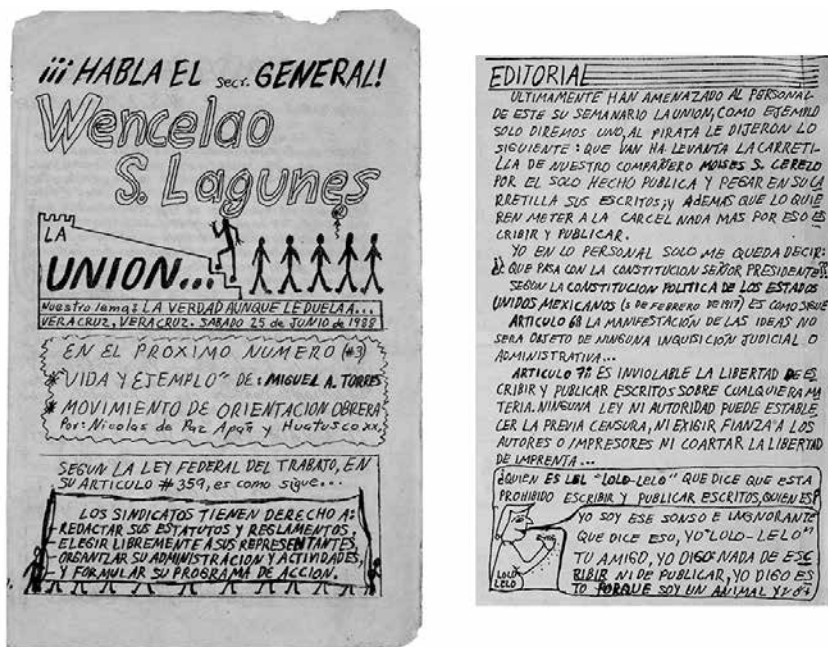 ¡¡¡HABLA EL secr. GENERAL!
Wencelao
S. Lagunes
LA
UNION...
Nuestro lema: LA VERDAD AUNQUE LE DUELA A...
VERACRUZ, VERACRUZ. SABADO 25 de JUNIO de 1988
EN EL PROXIMO NUMERO (#3)
* "VIDA Y EJEMPLO" DE: MIGUEL A. TORRES
* MOVIMIENTO DE ORIENTACION OBRERA
Por: Nicolas de Paz Apan y Huatusco xx.
SEGUN LA LEY FEDERAL DEL TRABAJO, EN
SU ARTICULO # 359, es como sigue...
LOS SINDICATOS TIENEN DERECHO A:
REDACTAR SUS ESTATUTOS Y REGLAMENTOS,
ELEGIR LIBREMENTE A SUS REPRESENTANTES,
ORGANIZAR SU ADMINISTRACION Y ACTIVIDADES,
Y FORMULAR SU PROGRAMA DE ACCION.
EDITORIAL
ULTIMAMENTE HAN AMENAZADO AL PERSONAL
DE ESTE SU SEMANARIO LA UNION, COMO EJEMPLO
SOLO DIREMOS UNO, AL PIRATA LE DIJERON LO
SIGUIENTE: QUE VAN HA LEVANTA LA CARRETI-
LLA DE NUESTRO COMPAÑERO MOISES S. CEREZO
POR EL SOLO HECHO PUBLICA Y PEGAR EN SU CA
RRETILLA SUS ESCRITOS; Y ADEMAS QUE LO QUIE
REN METER A LA CARCEL NADA MAS POR ESO ES
CRIBIR Y PUBLICAR.
YO EN LO PERSONAL SOLO ME QUEDA DECIR:
¿¿ QUE PASA CON LA CONSTITUCION SEÑOR PRESIDENTE??
SEGUN LA CONSTITUCION POLITICA DE LOS ESTADOS
UNIDOS MEXICANOS (5 DE FEBRERO DE 1917) ES COMO SIGUE
ARTICULO 6º LA MANIFESTACIÓN DE LAS IDEAS NO
SERA OBJETO DE NINGUNA INQUISICIÓN JUDICIAL O
ADMINISTRATIVA...
ARTICULO 7º: ES INVIOLABLE LA LIBERTAD DE ES
CRIBIR Y PUBLICAR ESCRITOS SOBRE CUALQUIERA MA
TERIA. NINGUNA LEY NI AUTORIDAD PUEDE ESTABLE
CER LA PREVIA CENSURA, NI EXIGIR FIANZA A LOS
AUTORES O IMPRESORES NI COARTAR LA LIBERTAD
DE IMPRENTA...
¿QUIEN ES "LOLO-LELO" QUE DICE QUE ESTA
PROHIBIDO ESCRIBIR Y PUBLICAR ESCRITOS, QUIEN ES?
YO SOY ESE SONSO E IGNORANTE
QUE DICE ESO, YO "LOLO-LELO"
TU AMIGO, YO DIGO NADA DE ESC
RIBIR NI DE PUBLICAR, YO DIGO ES
TO PORQUE SOY UN ANIMAL
LOLO
LELO